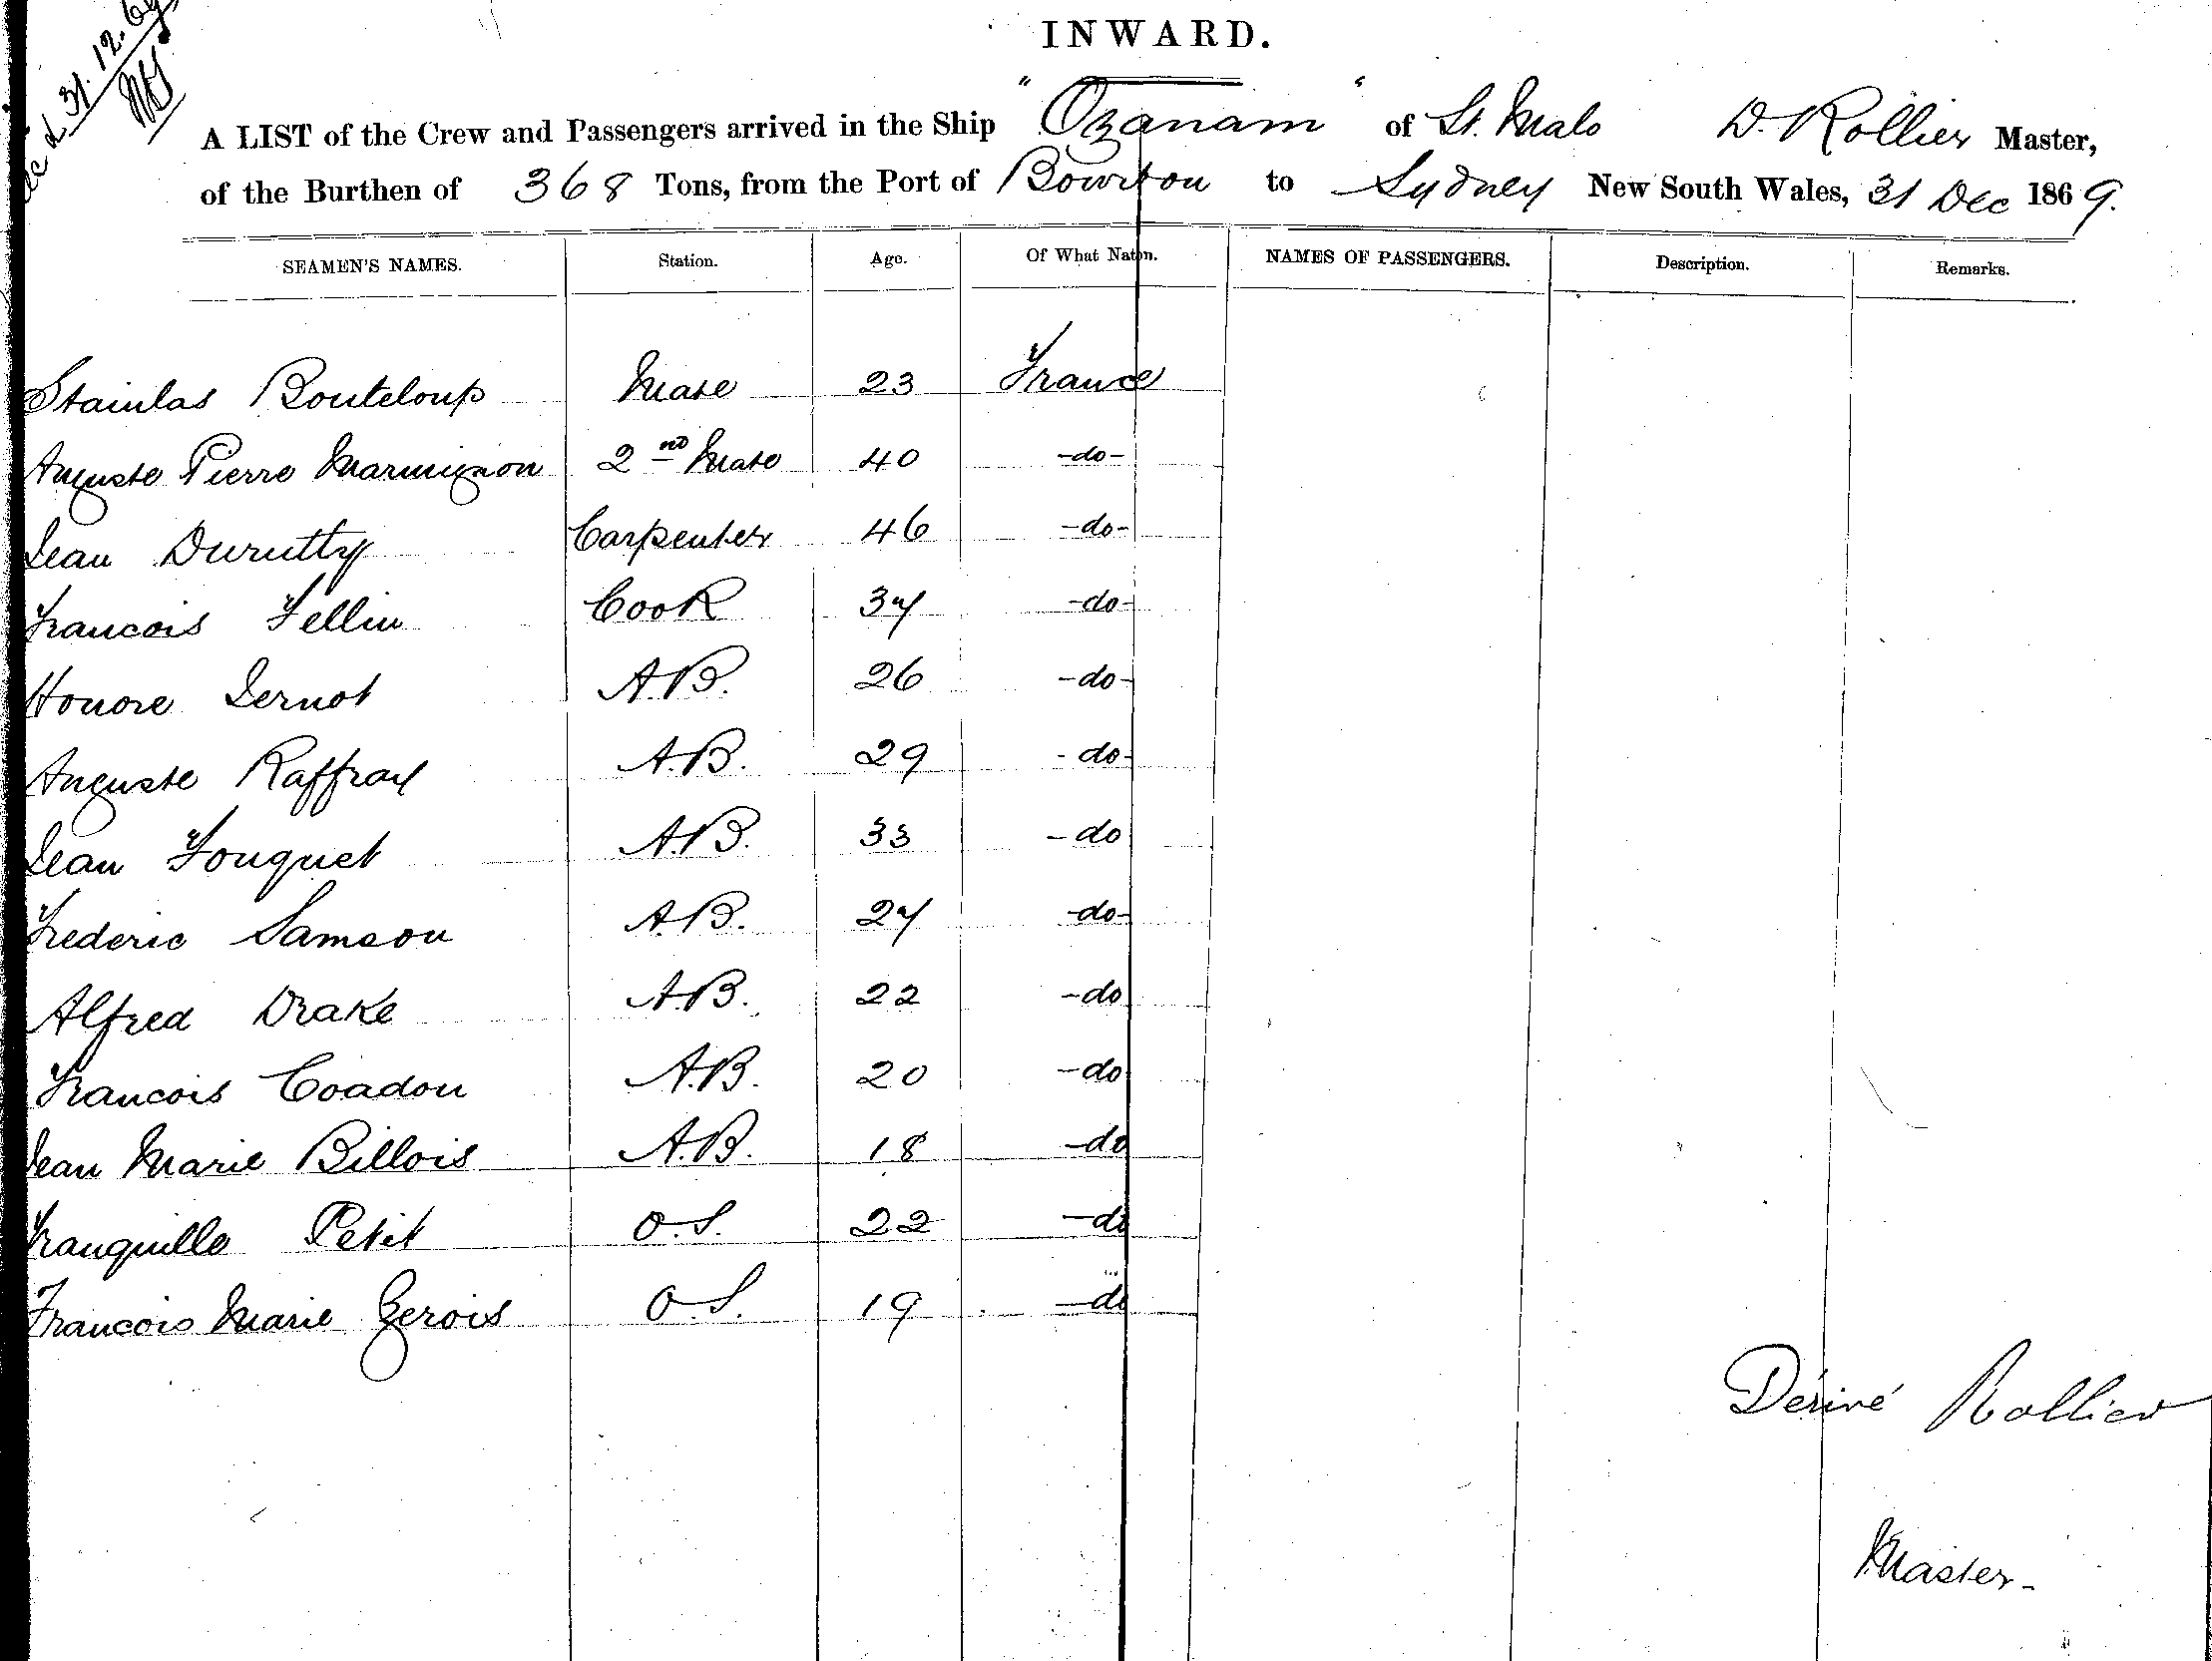 31.12.69
INWARD.
A LIST of the Crew and Passengers arrived in the Ship "Ozanam" of St. Malo D. Rollier Master,
of the Burthen of 368 Tons, from the Port of Bourbon to Sydney New South Wales, 31 Dec 1869.
SEAMEN'S NAMES. Station. Age. Of What Natn. NAMES OF PASSENGERS. Description. Remarks.
Stainlas Bouteloup Mate 23 France
Auguste Pierre Marmignon 2nd Mate 40 -do-
Jean Durutty Carpenter 46 -do-
Francois Fellin Cook 37 -do-
Honore Jernot A.B. 26 -do-
Auguste Raffray A.B. 29 -do-
Jean Fouquet A.B. 33 -do
Frederic Samson A.B. 27 -do-
Alfred Drake A.B. 22 -do
Francois Coadou A.B. 20 -do
Jean Marie Billois A.B. 18 -do
Tranquille Petit O.S. 22 -do
Francois Marie Gerois O.S. 19 -do
Désiré Rollier
Master-